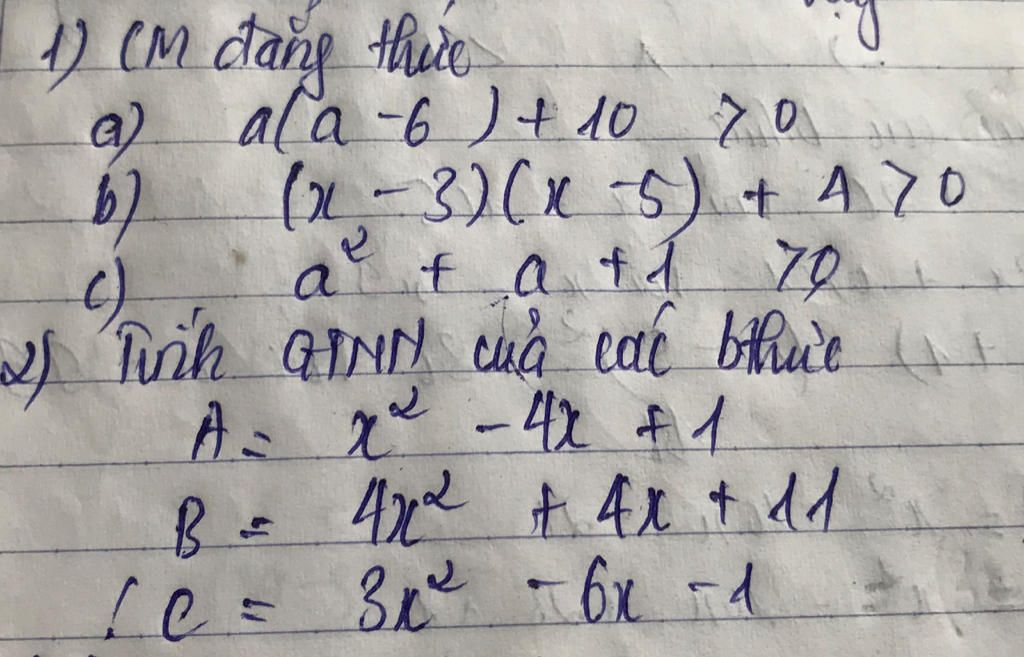 1) CM đẳng thức
a) a(a - 6) + 10 > 0
b) (x - 3)(x - 5) + 4 > 0
c) a² + a + 1 > 0
2) Tính GTNN của các bthức
A = x² - 4x + 1
B = 4x² + 4x + 11
C = 3x² - 6x - 1